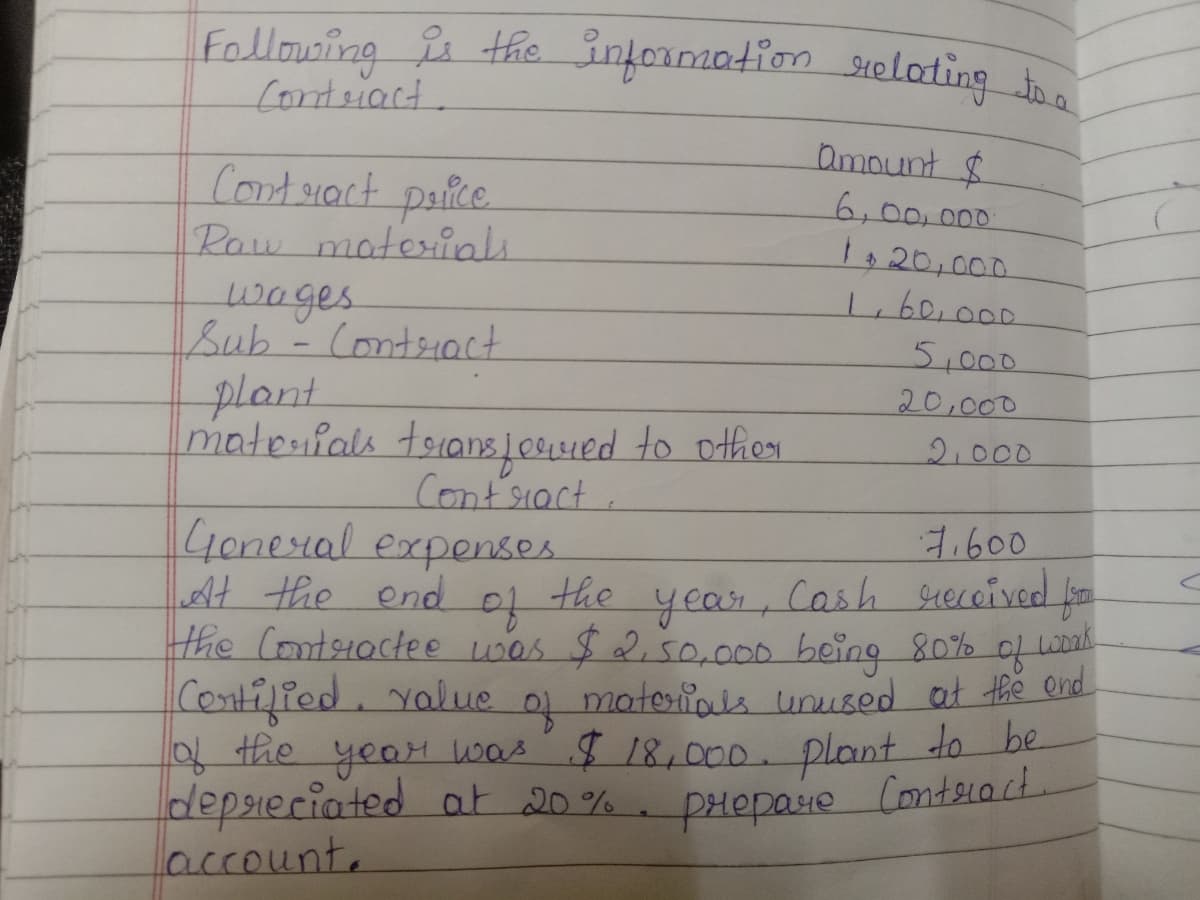 Following is the information relating to a
Contract.
Amount $
Contract price 6,00,000
Raw materials 1,20,000
wages 1,60,000
Sub - Contract 5,000
plant 20,000
materials transferred to other 2,000
Contract.
General expenses 7,600
At the end of the year, Cash received from
the Contractee was $ 2,50,000 being 80% of work
Certified. value of materials unused at the end
of the year was $ 18,000. plant to be
depreciated at 20%. prepare Contract
account.